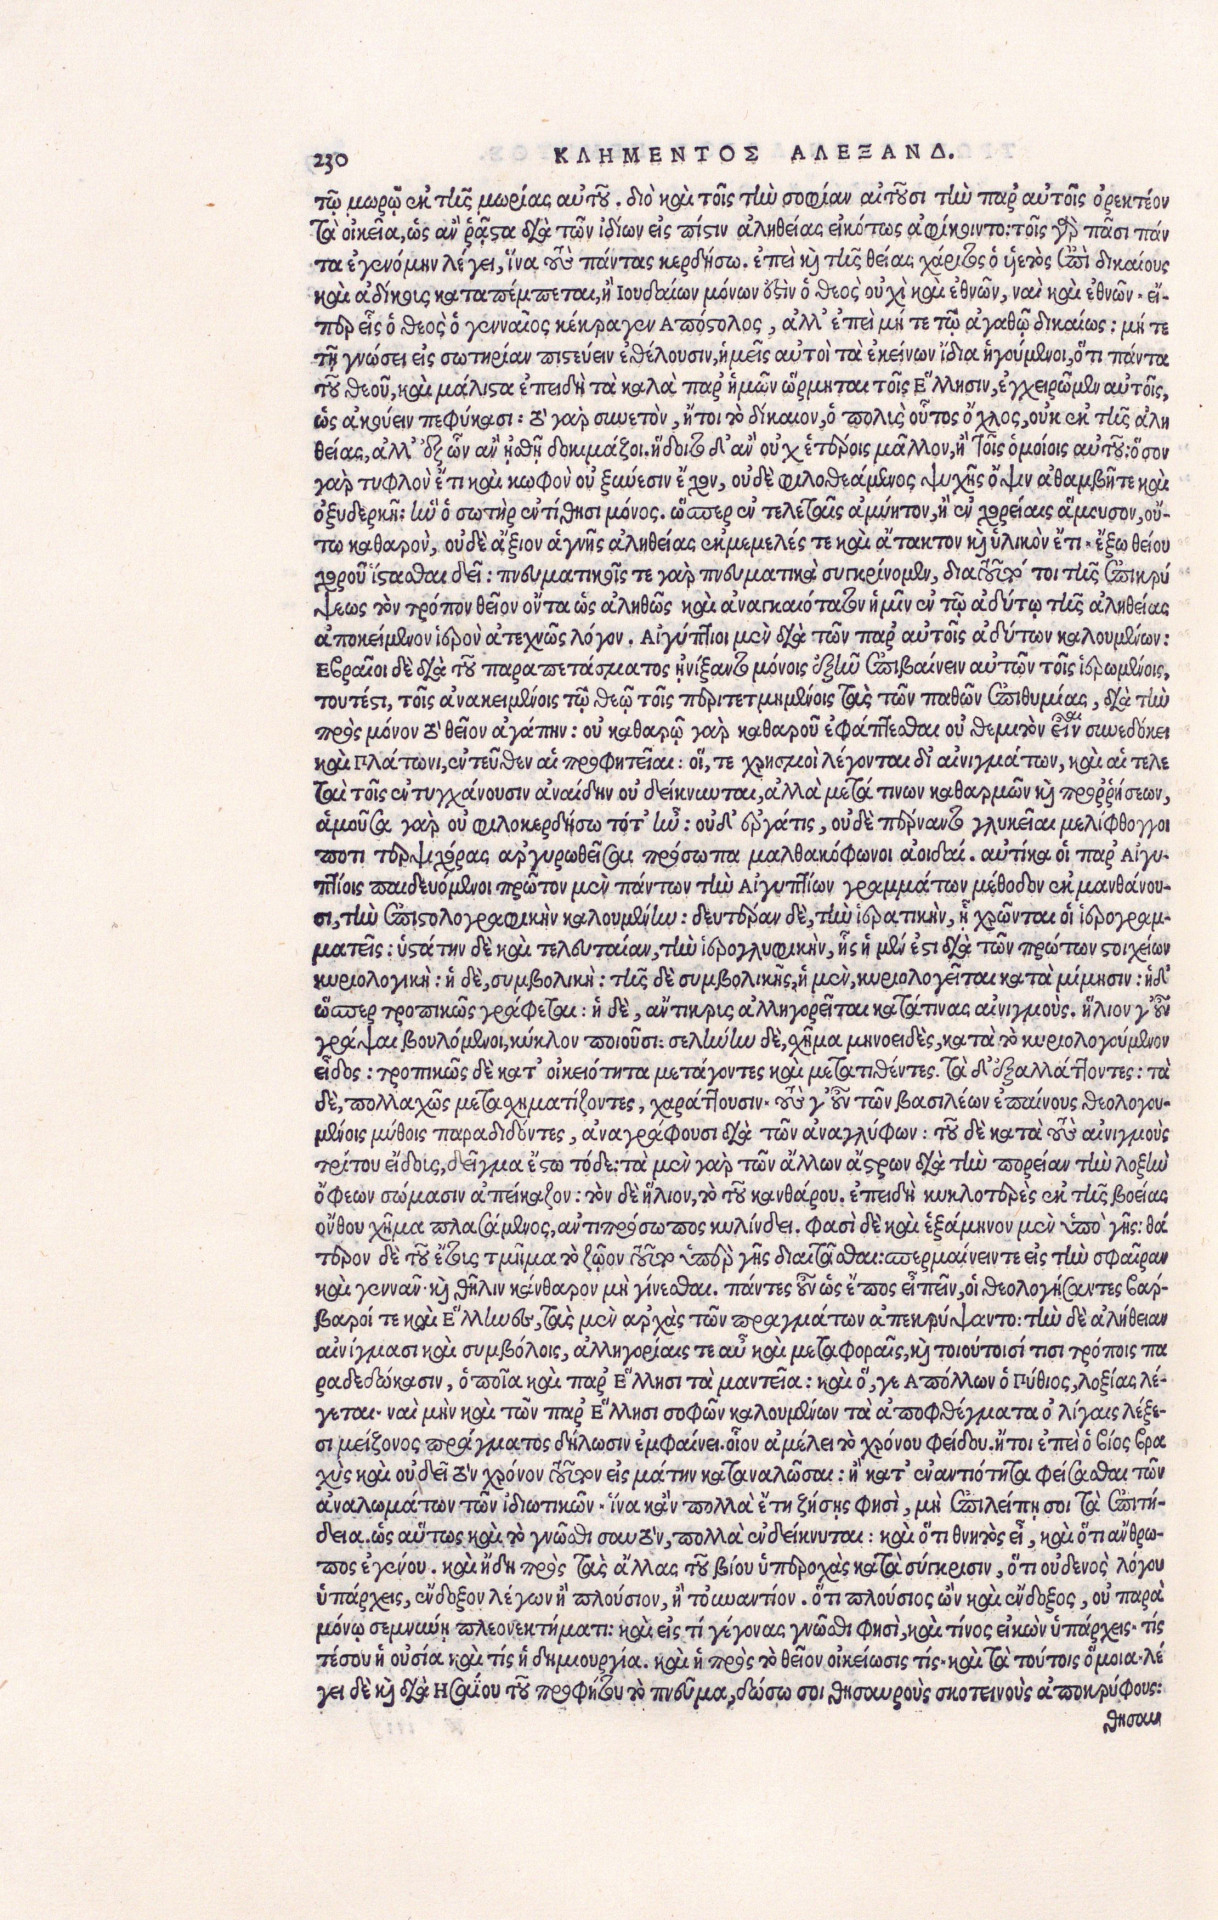 230 ΚΛΗΜΕΝΤΟΣ ΑΛΕΞΑΝΔ.
τῷ μωρῷ ἐκ τῆς μωρίας αὐτοῦ. διὸ καὶ τοῖς τὴν σοφίαν αἰτοῦσι τὴν παρ' αὐτοῖς ὀρεκτέον
τὰ οἰκεῖα, ὡς ἂν ῥᾷστα διὰ τῶν ἰδίων εἰς πίστιν ἀληθείας εἰκότως ἀφίκοιντο: τοῖς γὰρ πᾶσι πάν
τα ἐγενόμην λέγει, ἵνα τοὺς πάντας κερδήσω. ἐπεὶ καὶ τῆς θείας χάριτος ὁ ὑετὸς ἐπὶ δικαίους
καὶ ἀδίκοις καταπέμπεται, ἢ Ιουδαίων μόνων ἐστὶν ὁ θεὸς οὐχὶ καὶ ἐθνῶν, ναὶ καὶ ἐθνῶν· εἴ-
περ εἷς ὁ θεὸς ὁ γενναῖος κέκραγεν Απόστολος, ἀλλ' ἐπεὶ μή τε τῷ ἀγαθῷ δικαίως: μή τε
τῇ γνώσει εἰς σωτηρίαν πιστεύειν ἐθέλουσιν, ἡμεῖς αὐτοὶ τὰ ἐκείνων ἴδια ἡγούμενοι, ὅτι πάντα
τοῦ θεοῦ, καὶ μάλιστα ἐπειδὴ τὰ καλὰ παρ' ἡμῶν ὥρμηται τοῖς Ελλησιν, ἐγχειρῶμεν αὐτοῖς,
ὡς ἀκούειν πεφύκασι: τὸ γὰρ συνετὸν, ἤτοι τὸ δίκαιον, ὁ πολὺς οὗτος ὄχλος, οὐκ ἐκ τῆς ἀλη
θείας, ἀλλ' ἐξ ὧν ἂν ἡσθῇ δοκιμάζει. ἥδοιτο δ' ἂν οὐχ ἑτέροις μᾶλλον, ἢ τοῖς ὁμοίοις αὐτοῦ: ὅσον
γὰρ τυφλὸν ἔτι καὶ κωφὸν οὐ ξύνεσιν ἔχον, οὐδὲ φιλοθεάμονος ψυχῆς ὄψιν ἀθαμβῆ τε καὶ
ὀξυδερκῆ: ἣν ὁ σωτὴρ ἐντίθησι μόνος. ὥσπερ ἐν τελεταῖς ἀμύητον, ἢ ἐν χορείαις ἄμουσον, οὔ-
τω καθαρὸν, οὐδὲ ἄξιον ἁγνῆς ἀληθείας ἐκμελές τε καὶ ἄτακτον καὶ ὑλικὸν ἔτι· ἔξω θείου
χοροῦ ἵστασθαι δεῖ: πνευματικοῖς τε γὰρ πνευματικὰ συγκρίνομεν, διὰ τοῦτό τοι τῆς ἐπικρύ
ψεως τὸν τρόπον θεῖον ὄντα ὡς ἀληθῶς καὶ ἀναγκαιότατον ἡμῖν ἐν τῷ ἀδύτῳ τῆς ἀληθείας
ἀποκείμενον ἱερὸν ἀτεχνῶς λόγον. Αἰγύπτιοι μὲν διὰ τῶν παρ' αὐτοῖς ἀδύτων καλουμένων:
Εβραῖοι δὲ διὰ τοῦ παραπετάσματος ᾐνίξαντο μόνοις ἐξῆν ἐπιβαίνειν αὐτῶν τοῖς ἱερωμένοις,
τουτέστι, τοῖς ἀνακειμένοις τῷ θεῷ τοῖς περιτετμημένοις τὰς τῶν παθῶν ἐπιθυμίας, διὰ τὴν
πρὸς μόνον τὸ θεῖον ἀγάπην: οὐ καθαρῷ γὰρ καθαροῦ ἐφάπτεσθαι οὐ θεμιτὸν εἶναι συνεδόκει
καὶ Πλάτωνι, ἐντεῦθεν αἱ προφητεῖαι: οἵ, τε χρησμοὶ λέγονται δι' αἰνιγμάτων, καὶ αἱ τελε
ταὶ τοῖς ἐντυγχάνουσιν ἀναίδην οὐ δείκνυνται, ἀλλὰ μετά τινων καθαρμῶν καὶ προρρήσεων,
ἁ μοῦσα γὰρ οὐ φιλοκερδήσω τότ' ἦν: οὐδ' ἐργάτις, οὐδὲ πέρναντο γλυκεῖαι μελίφθογγοι
ποτὶ τερψιχόρας ἀργυρωθεῖσαι πρόσωπα μαλθακόφωνοι ἀοιδαί. αὐτίκα οἱ παρ' Αἰγυ-
πτίοις παιδευόμενοι πρῶτον μὲν πάντων τὴν Αἰγυπτίων γραμμάτων μέθοδον ἐκμανθάνου-
σι, τὴν ἐπιστολογραφικὴν καλουμένην: δευτέραν δὲ, τὴν ἱερατικὴν, ᾗ χρῶνται οἱ ἱερογραμ-
ματεῖς: ὑστάτην δὲ καὶ τελευταίαν, τὴν ἱερογλυφικὴν, ἧς ἡ μέν ἐστι διὰ τῶν πρώτων στοιχείων
κυριολογικὴ: ἡ δὲ, συμβολικὴ: τῆς δὲ συμβολικῆς, ἡ μὲν, κυριολογεῖται κατὰ μίμησιν: ἡ δ'
ὥσπερ τροπικῶς γράφεται: ἡ δὲ, ἄντικρις ἀλληγορεῖται κατά τινας αἰνιγμούς. ἥλιον γ' οὖν
γράψαι βουλόμενοι, κύκλον ποιοῦσι: σελήνην δὲ, σχῆμα μηνοειδὲς, κατὰ τὸ κυριολογούμενον
εἶδος: τροπικῶς δὲ κατ' οἰκειότητα μετάγοντες καὶ μετατιθέντες. τὰ δ' ἐξαλλάττοντες: τὰ
δὲ, πολλαχῶς μετασχηματίζοντες, χαράττουσιν· τοὺς γ' οὖν τῶν βασιλέων ἐπαίνους θεολογου-
μένοις μύθοις παραδιδόντες, ἀναγράφουσι διὰ τῶν ἀναγλύφων: τοῦ δὲ κατὰ τοὺς αἰνιγμοὺς
τρίτου εἴδοις, δεῖγμα ἔστω τόδε: τὰ μὲν γὰρ τῶν ἄλλων ἄστρων διὰ τὴν πορείαν τὴν λοξὴν
ὄφεων σώμασιν ἀπείκαζον: τὸν δὲ ἥλιον, τὸ τοῦ κανθάρου. ἐπειδὴ κυκλοτερὲς ἐκ τῆς βοείας
ὄνθου χῆμα πλασάμενος, ἀντιπρόσωπος κυλίνδει. φασὶ δὲ καὶ ἑξάμηνον μὲν ὑπὸ γῆς: θά
τερον δὲ τοῦ ἔτους τμῆμα τὸ ζῷον τοῦτο ὑπὲρ γῆς διαιτᾶσθαι: σπερμαίνειν τε εἰς τὴν σφαῖραν
καὶ γεννᾶν· καὶ θῆλιν κάνθαρον μὴ γίνεσθαι. πάντες οὖν ὡς ἔπος εἰπεῖν, οἱ θεολογήσαντες βάρ-
βαροί τε καὶ Ελληνες, τὰς μὲν ἀρχὰς τῶν πραγμάτων ἀπεκρύψαντο: τὴν δὲ ἀλήθειαν
αἰνίγμασι καὶ συμβόλοις, ἀλληγορίαις τε αὖ καὶ μεταφοραῖς, καὶ τοιούτοισί τισι τρόποις πα
ραδεδώκασιν, ὁποῖα καὶ παρ' Ελλησι τὰ μαντεῖα: καὶ ὅ, γε Απόλλων ὁ Πύθιος, λοξίας λέ-
γεται· ναὶ μὴν καὶ τῶν παρ' Ελλησι σοφῶν καλουμένων τὰ ἀποφθέγματα ὀλίγαις λέξε-
σι μείζονος πράγματος δήλωσιν ἐμφαίνει. οἷον ἀμέλει τὸ χρόνου φείδου. ἤτοι ἐπεὶ ὁ βίος βρα
χὺς καὶ οὐ δεῖ τὸν χρόνον τοῦτον εἰς μάτην καταναλῶσαι: ἢ κατ' ἐναντιότητα φείσασθαι τῶν
ἀναλωμάτων τῶν ἰδιωτικῶν· ἵνα κἂν πολλὰ ἔτη ζήσῃς φησὶ, μὴ ἐπιλείπῃ σοι τὰ ἐπιτή-
δεια. ὡς αὕτως καὶ τὸ γνῶθι σαυτὸν, πολλὰ ἐνδείκνυται: καὶ ὅτι θνητὸς εἶ, καὶ ὅτι ἄνθρω-
πος ἐγένου. καὶ ἤδη πρὸς τὰς ἄλλας τοῦ βίου ὑπεροχὰς κατὰ σύγκρισιν, ὅτι οὐδενὸς λόγου
ὑπάρχεις, ἔνδοξον λέγων ἢ πλούσιον, ἢ τοὐναντίον. ὅτι πλούσιος ὢν καὶ ἔνδοξος, οὐ παρὰ
μόνῳ σεμνύνῃ πλεονεκτήματι: καὶ εἰς τί γέγονας γνῶθι φησὶ, καὶ τίνος εἰκὼν ὑπάρχεις· τίς
τέ σου ἡ οὐσία καὶ τίς ἡ δημιουργία. καὶ ἡ πρὸς τὸ θεῖον οἰκείωσις τίς· καὶ τὰ τούτοις ὅμοια· λέ
γει δὲ καὶ διὰ Ησαΐου τοῦ προφήτου τὸ πνεῦμα, δώσω σοι θησαυροὺς σκοτεινοὺς ἀποκρύφους:
θησαυ